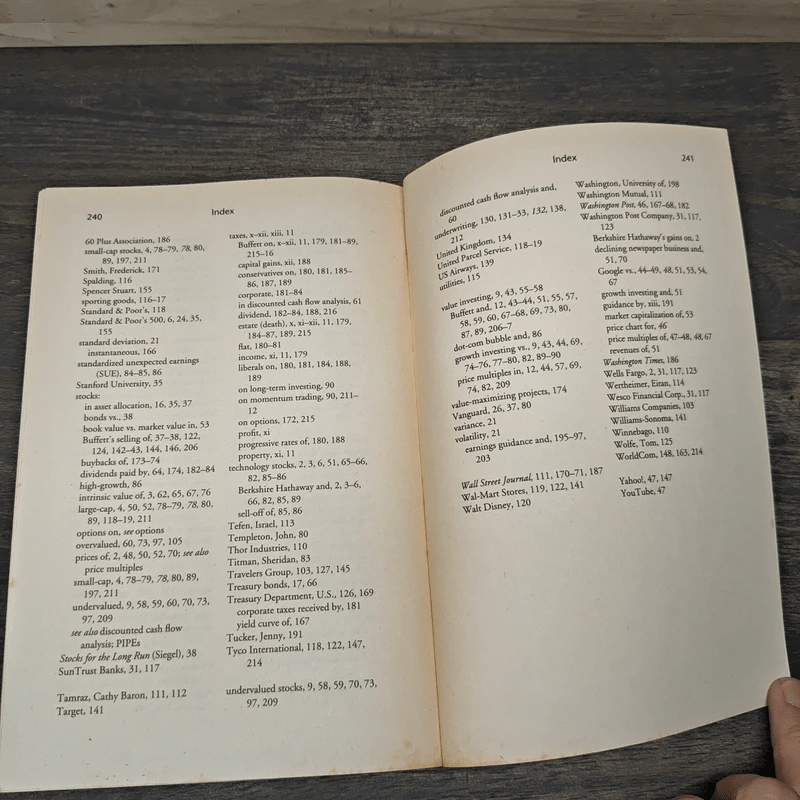 240
Index
60 Plus Association, 186
small-cap stocks, 4, 78–79, 78, 80,
89, 197, 211
Smith, Frederick, 171
Spalding, 116
Spencer Stuart, 155
sporting goods, 116–17
Standard & Poor's, 118
Standard & Poor's 500, 6, 24, 35,
155
standard deviation, 21
instantaneous, 166
standardized unexpected earnings
(SUE), 84–85, 86
Stanford University, 35
stocks:
in asset allocation, 16, 35, 37
bonds vs., 38
book value vs. market value in, 53
Buffett's selling of, 37–38, 122,
124, 142–43, 144, 146, 206
buybacks of, 173–74
dividends paid by, 64, 174, 182–84
high-growth, 86
intrinsic value of, 3, 62, 65, 67, 76
large-cap, 4, 50, 52, 78–79, 78, 80,
89, 118–19, 211
options on, see options
overvalued, 60, 73, 97, 105
prices of, 2, 48, 50, 52, 70; see also
price multiples
small-cap, 4, 78–79, 78, 80, 89,
197, 211
undervalued, 9, 58, 59, 60, 70, 73,
97, 209
see also discounted cash flow
analysis; PIPEs
Stocks for the Long Run (Siegel), 38
SunTrust Banks, 31, 117
Tamraz, Cathy Baron, 111, 112
Target, 141
taxes, x–xii, xiii, 11
Buffett on, x–xii, 11, 179, 181–89,
215–16
capital gains, xii, 188
conservatives on, 180, 181, 185–
86, 187, 189
corporate, 181–84
in discounted cash flow analysis, 61
dividend, 182–84, 188, 216
estate (death), x, xi–xii, 11, 179,
184–87, 189, 215
flat, 180–81
income, xi, 11, 179
liberals on, 180, 181, 184, 188,
189
on long-term investing, 90
on momentum trading, 90, 211–
12
on options, 172, 215
profit, xi
progressive rates of, 180, 188
property, xi, 11
technology stocks, 2, 3, 6, 51, 65–66,
82, 85–86
Berkshire Hathaway and, 2, 3–6,
66, 82, 85, 89
sell-off of, 85, 86
Tefen, Israel, 113
Templeton, John, 80
Thor Industries, 110
Titman, Sheridan, 83
Travelers Group, 103, 127, 145
Treasury bonds, 17, 66
Treasury Department, U.S., 126, 169
corporate taxes received by, 181
yield curve of, 167
Tucker, Jenny, 191
Tyco International, 118, 122, 147,
214
undervalued stocks, 9, 58, 59, 70, 73,
97, 209
Index
241
discounted cash flow analysis and,
60
underwriting, 130, 131–33, 132, 138,
212
United Kingdom, 134
United Parcel Service, 118–19
US Airways, 139
utilities, 115
value investing, 9, 43, 55–58
Buffett and, 12, 43–44, 51, 55, 57,
58, 59, 60, 67–68, 69, 73, 80,
87, 89, 206–7
dot-com bubble and, 86
growth investing vs., 9, 43, 44, 69,
74–76, 77–80, 82, 89–90
price multiples in, 12, 44, 57, 69,
74, 82, 209
value-maximizing projects, 174
Vanguard, 26, 37, 80
variance, 21
volatility, 21
earnings guidance and, 195–97,
203
Wall Street Journal, 111, 170–71, 187
Wal-Mart Stores, 119, 122, 141
Walt Disney, 120
Washington, University of, 198
Washington Mutual, 111
Washington Post, 46, 167–68, 182
Washington Post Company, 31, 117,
123
Berkshire Hathaway's gains on, 2
declining newspaper business and,
51, 70
Google vs., 44–49, 48, 51, 53, 54,
67
growth investing and, 51
guidance by, xiii, 191
market capitalization of, 53
price chart for, 46
price multiples of, 47–48, 48, 67
revenues of, 51
Washington Times, 186
Wells Fargo, 2, 31, 117, 123
Wertheimer, Eitan, 114
Wesco Financial Corp., 31, 117
Williams Companies, 103
Williams-Sonoma, 141
Winnebago, 110
Wolfe, Tom, 125
WorldCom, 148, 163, 214
Yahoo!, 47, 147
YouTube, 47